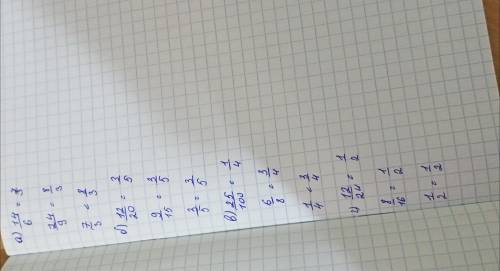 а) 14/6 = 7/3
24/9 = 8/3
7/3 = 8/3
б) 12/20 = 3/5
9/15 = 3/5
3/5 = 3/5
в) 25/100 = 1/4
6/8 = 3/4
1/4 = 3/4
г) 12/24 = 1/2
8/16 = 1/2
1/2 = 1/2